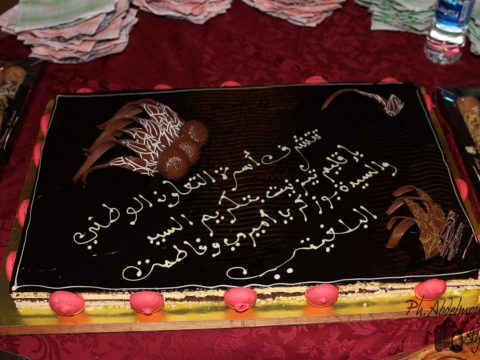 تتشرف أسرة التعاون الوطني
بإقليم تيزنيت بتكريم السيد
والسيدة بوزكريا أميري وفاطمة
البلغيتي
Ph. Abdelkarim